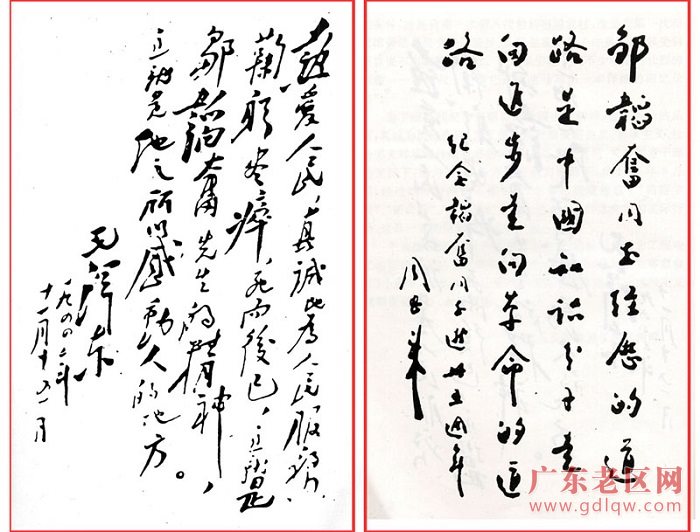 热爱人民，真誠地為人民服務，
鞠躬尽瘁，死而後已，这就是
鄒韜奮先生的精神，
这就是他之所以感動人的地方。
毛澤东
一九四四年
十一月十五日
邹韬奮同志经历的道
路是中國知识分子走
向进步走向革命的道
路
纪念韬奮同志逝世五週年
周恩来
广东老区网
www.gdlqw.com